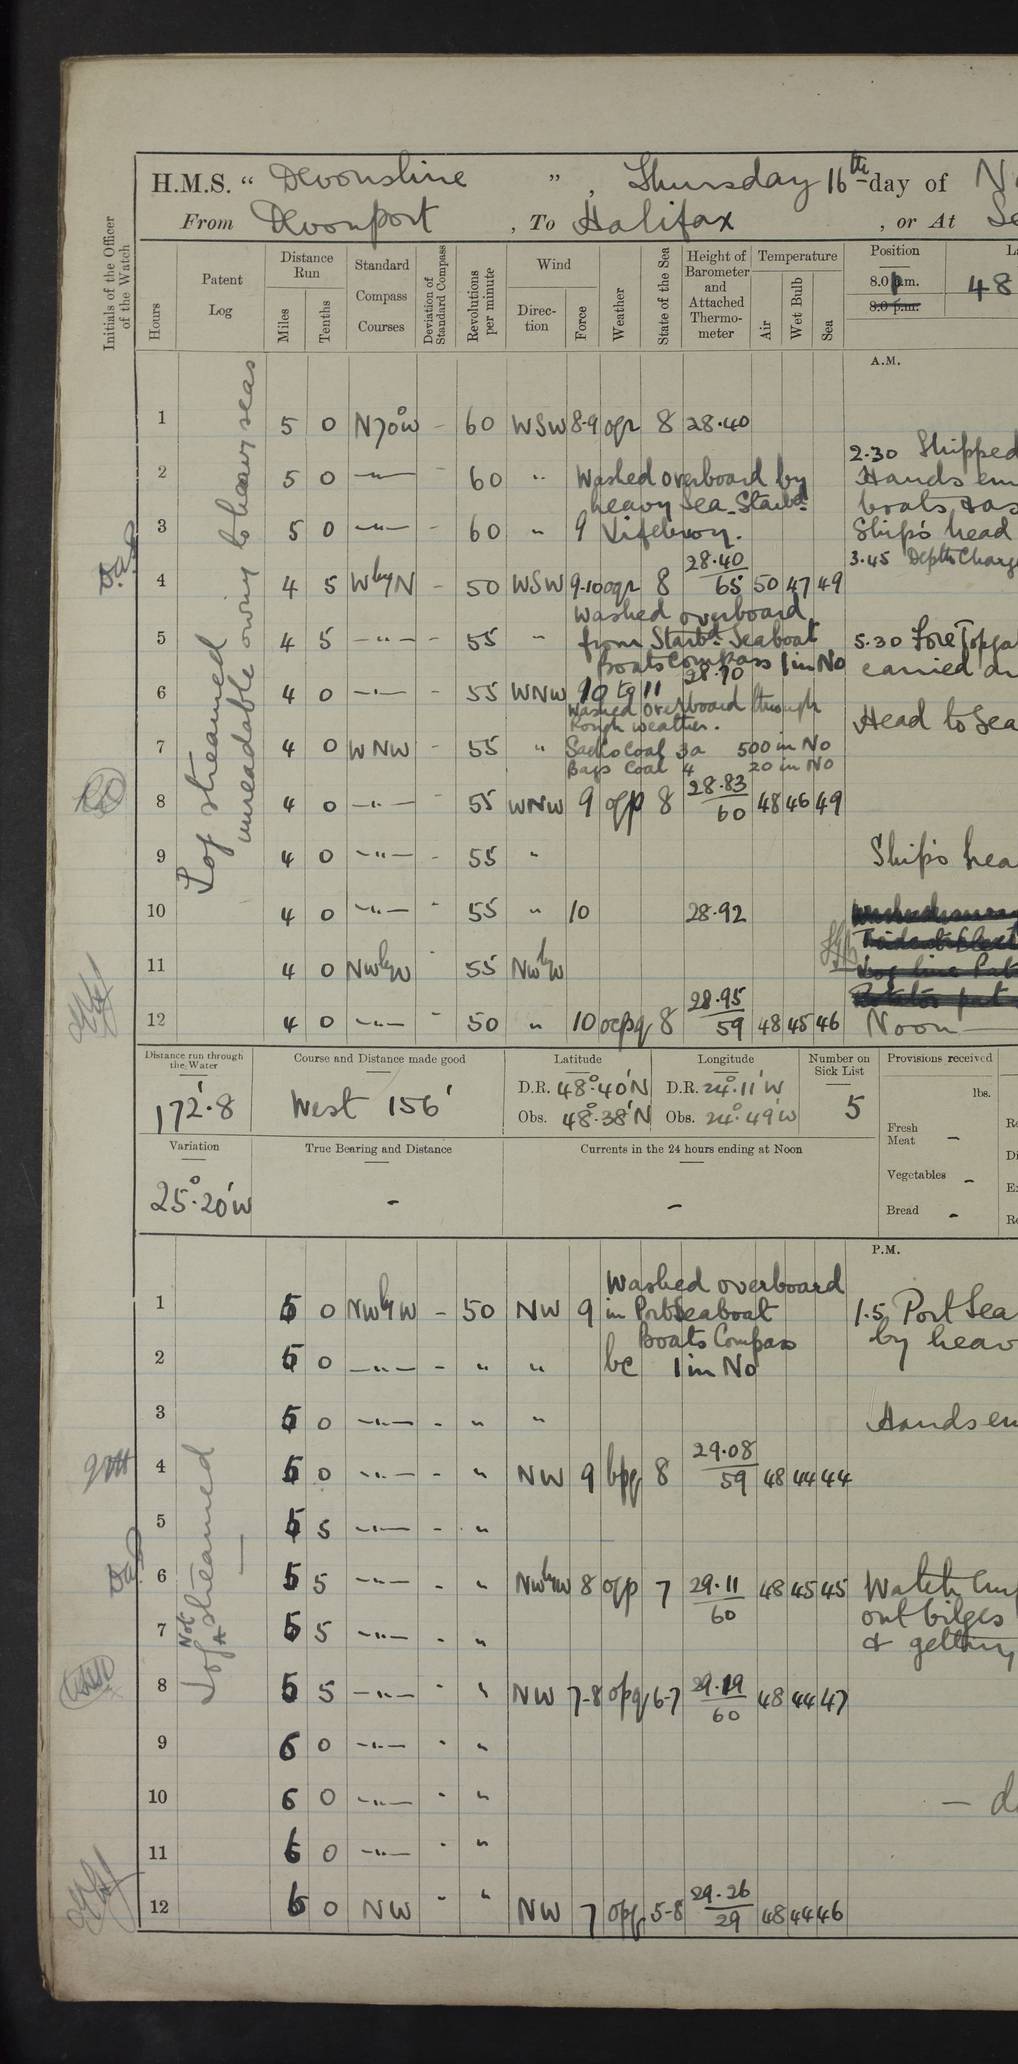 H.M.S. “ Devonshire ” , Thursday 16th day of N
From Devonport , To Halifax , or At Se
Initials of the Officer of the Watch
Hours
Patent Log
Distance Run
Miles
Tenths
Standard Compass Courses
Deviation of Standard Compass
Revolutions per minute
Wind
Direc-tion
Force
Weather
State of the Sea
Height of Barometer and Attached Thermo-meter
Temperature
Air
Wet Bulb
Sea
Position
8.0 p.m. 48
8.0 p.m.
A.M.
Log streamed unreadable owing to heavy seas
1 5 0 N70°W - 60 WSW 8-9 oqr 8 28.40
2.30 Shipped
2 5 0 —"— - 60 " Washed overboard by Hands em
heavy Sea_Starbd boats & as
3 5 0 —"— - 60 " 9 Lifebuoy. Ship's head
3.45 Depth Charge
4 4 5 WbyN - 50 WSW 9-10 oqr 8 28.40/65 50 47 49
Washed overboard
5 4 5 —"— - 55 " from Starbd Seaboat 5.30 Fore Topga
Boats Compass 1 in No carried a
6 4 0 —"— 55 WNW 10 to 11 28.70
Washed overboard through Head to Sea
Rough weather.
7 4 0 WNW - 55 " Sacks Coal 3a 500 in No
Bags Coal 4 20 in No
8 4 0 —"— 55 WNW 9 oqp 8 28.83/60 48 46 49
9 4 0 —"— - 55 " Ship's hea
10 4 0 —"— - 55 " 10 28.92
11 4 0 NWbyW 55 NWbyW
12 4 0 —"— - 50 " 10 ocpq 8 28.95/59 48 45 46 Noon —
Distance run through the Water
172.8
Course and Distance made good
West 156'
Latitude
D.R. 48°.40'N
Obs. 48°.38'N
Longitude
D.R. 24°.11'W
Obs. 24°.49'W
Number on Sick List
5
Provisions received
lbs.
Fresh Meat -
Vegetables -
Bread -
Variation
25°.20'W
True Bearing and Distance
-
Currents in the 24 hours ending at Noon
-
P.M.
Log Not streamed
Washed overboard
1 5 0 NWbyW - 50 NW 9 in Port Seaboat 1.5 Port Sea
Boats Compass by heav
2 5 0 —"— - " " bc 1 in No
3 5 0 —"— - " " Hands em
4 5 0 —"— - " NW 9 bpq 8 29.08/59 48 44 44
5 5 5 —"— - "
6 5 5 —"— - " NWbyW 8 oqp 7 29.11/60 48 45 45 Watch emp
out bilges
7 5 5 —"— " & getting
8 5 5 —"— " NW 7-8 opq 6-7 29.19/60 48 44 47
9 6 0 —"— - "
10 6 0 —"— - " — d
11 6 0 —"— - "
12 6 0 NW - " NW 7 opq 5-8 29.26/29 48 44 46